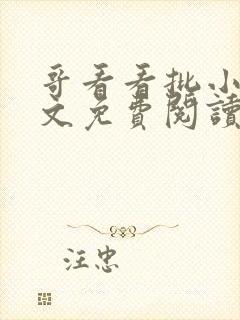 哥看看批小
文免費閱讀
汪忠